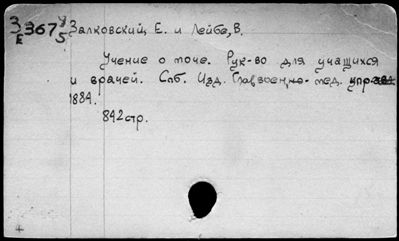 З 367 У
Е 5
Залковский, Е. и Лейбе, В.
Учение о моче. Рук-во для учащихся
и врачей. Спб. Изд. Главвоенно-мед. упр
1884.
842 стр.
4